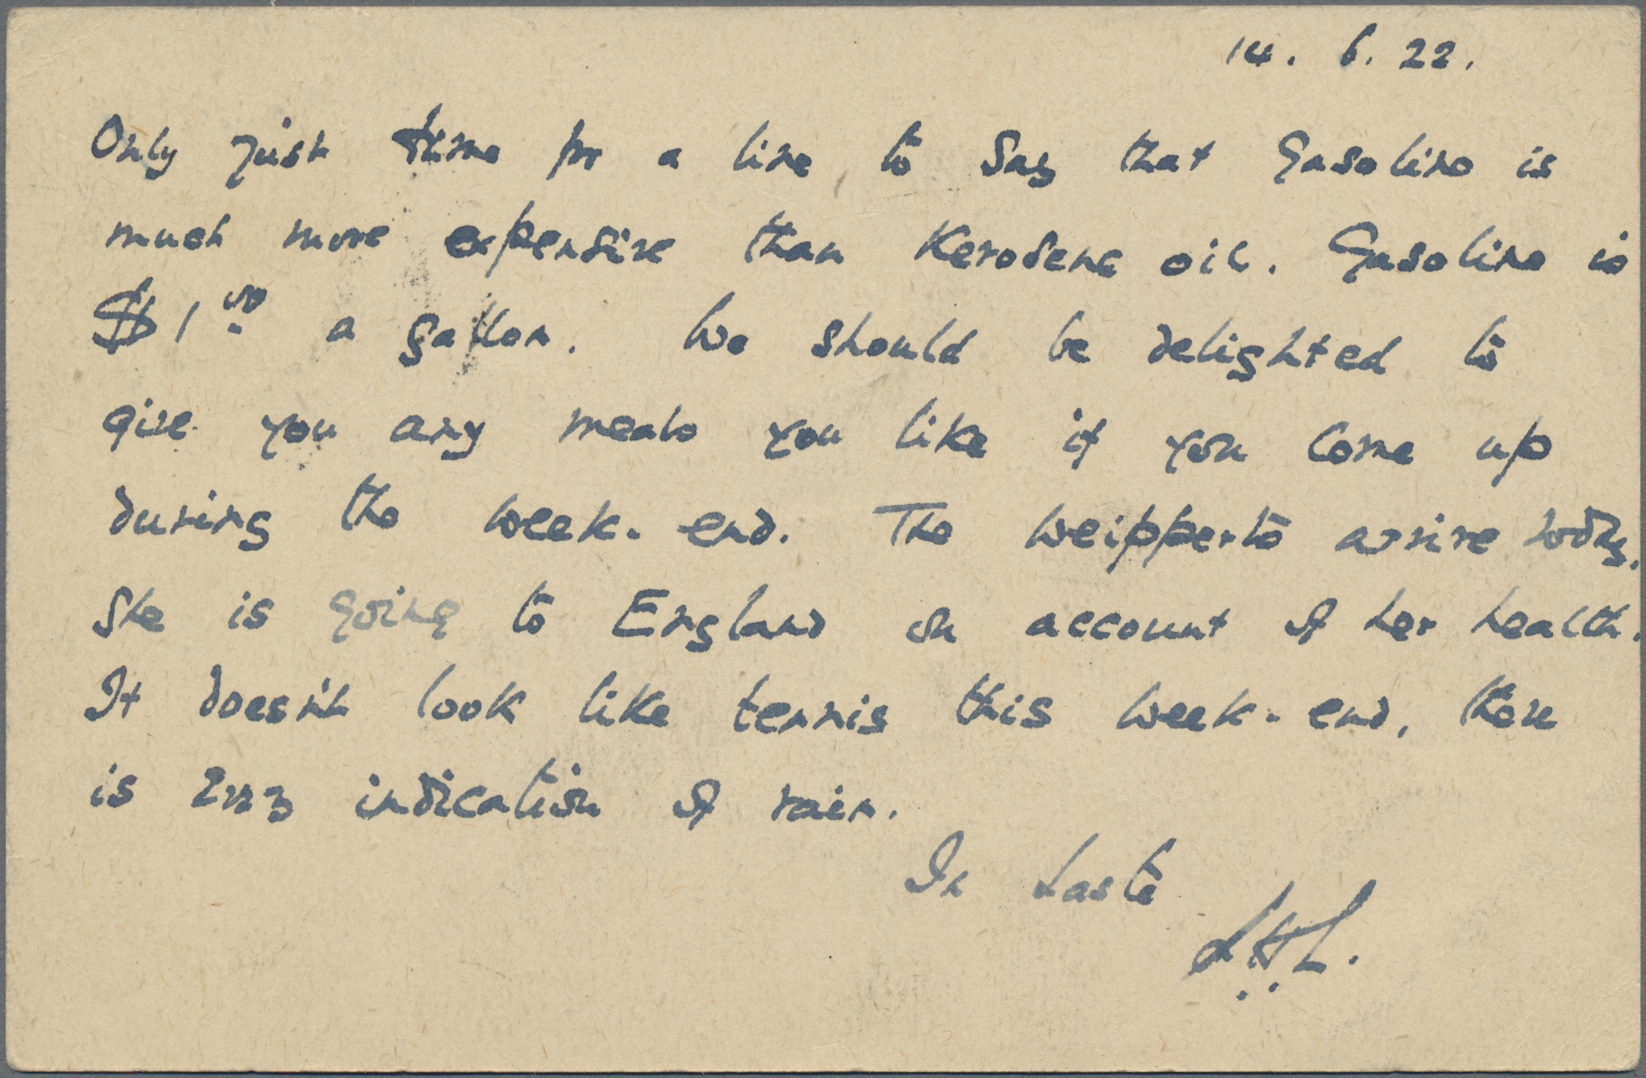 14. 6. 22.
Only just time for a line to say that Gasoline is
much more expensive than Kerosene oil. Gasoline is
$1.00 a gallon. We should be delighted to
give you any meals you like if you come up
during the week-end. The Weipperts arrive today.
She is going to England on account of her health.
It doesn't look like tennis this week-end, there
is every indication of rain.
In haste
L.H.L.